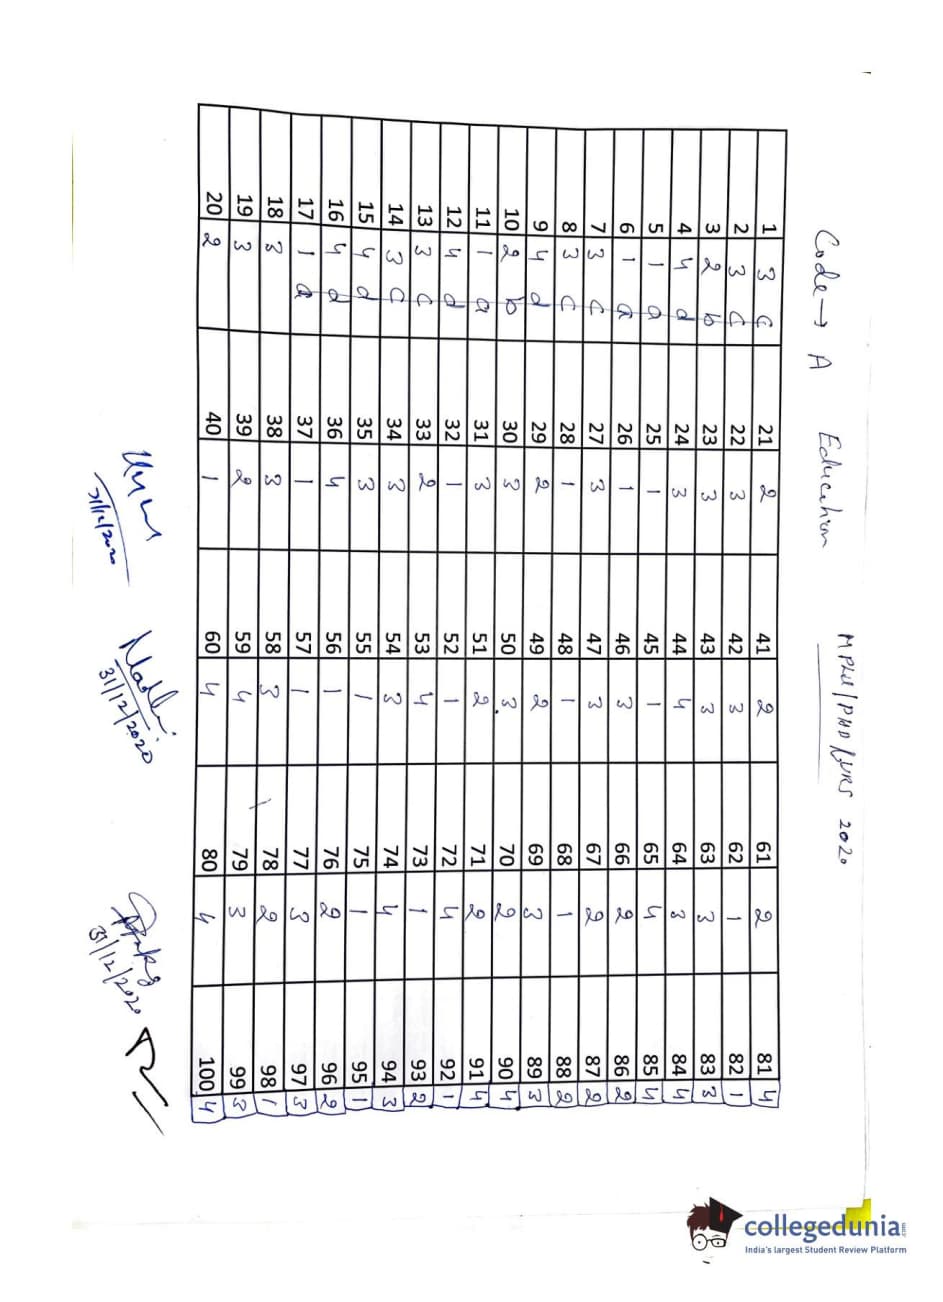 Code → A Education MPhil/PhD/URS 2020
1 3 c 21 2 41 2 61 2 81 4
2 3 c 22 3 42 3 62 1 82 1
3 2 b 23 3 43 3 63 3 83 3
4 4 d 24 3 44 4 64 3 84 4
5 1 a 25 1 45 1 65 4 85 4
6 1 a 26 1 46 3 66 2 86 2
7 3 c 27 3 47 3 67 2 87 2
8 3 c 28 1 48 1 68 1 88 2
9 4 d 29 2 49 2 69 3 89 3
10 2 b 30 3 50 3 70 2 90 4
11 1 a 31 3 51 2 71 2 91 4
12 4 d 32 1 52 1 72 4 92 1
13 3 c 33 2 53 4 73 1 93 2
14 3 c 34 3 54 3 74 4 94 3
15 4 d 35 3 55 1 75 1 95 1
16 4 d 36 4 56 1 76 2 96 2
17 1 a 37 1 57 1 77 3 97 3
18 3 38 3 58 3 78 2 98 1
19 3 39 2 59 4 79 3 99 3
20 2 40 1 60 4 80 4 100 4
31/12/2020 31/12/2020 31/12/2020
collegedunia.com
India's largest Student Review Platform